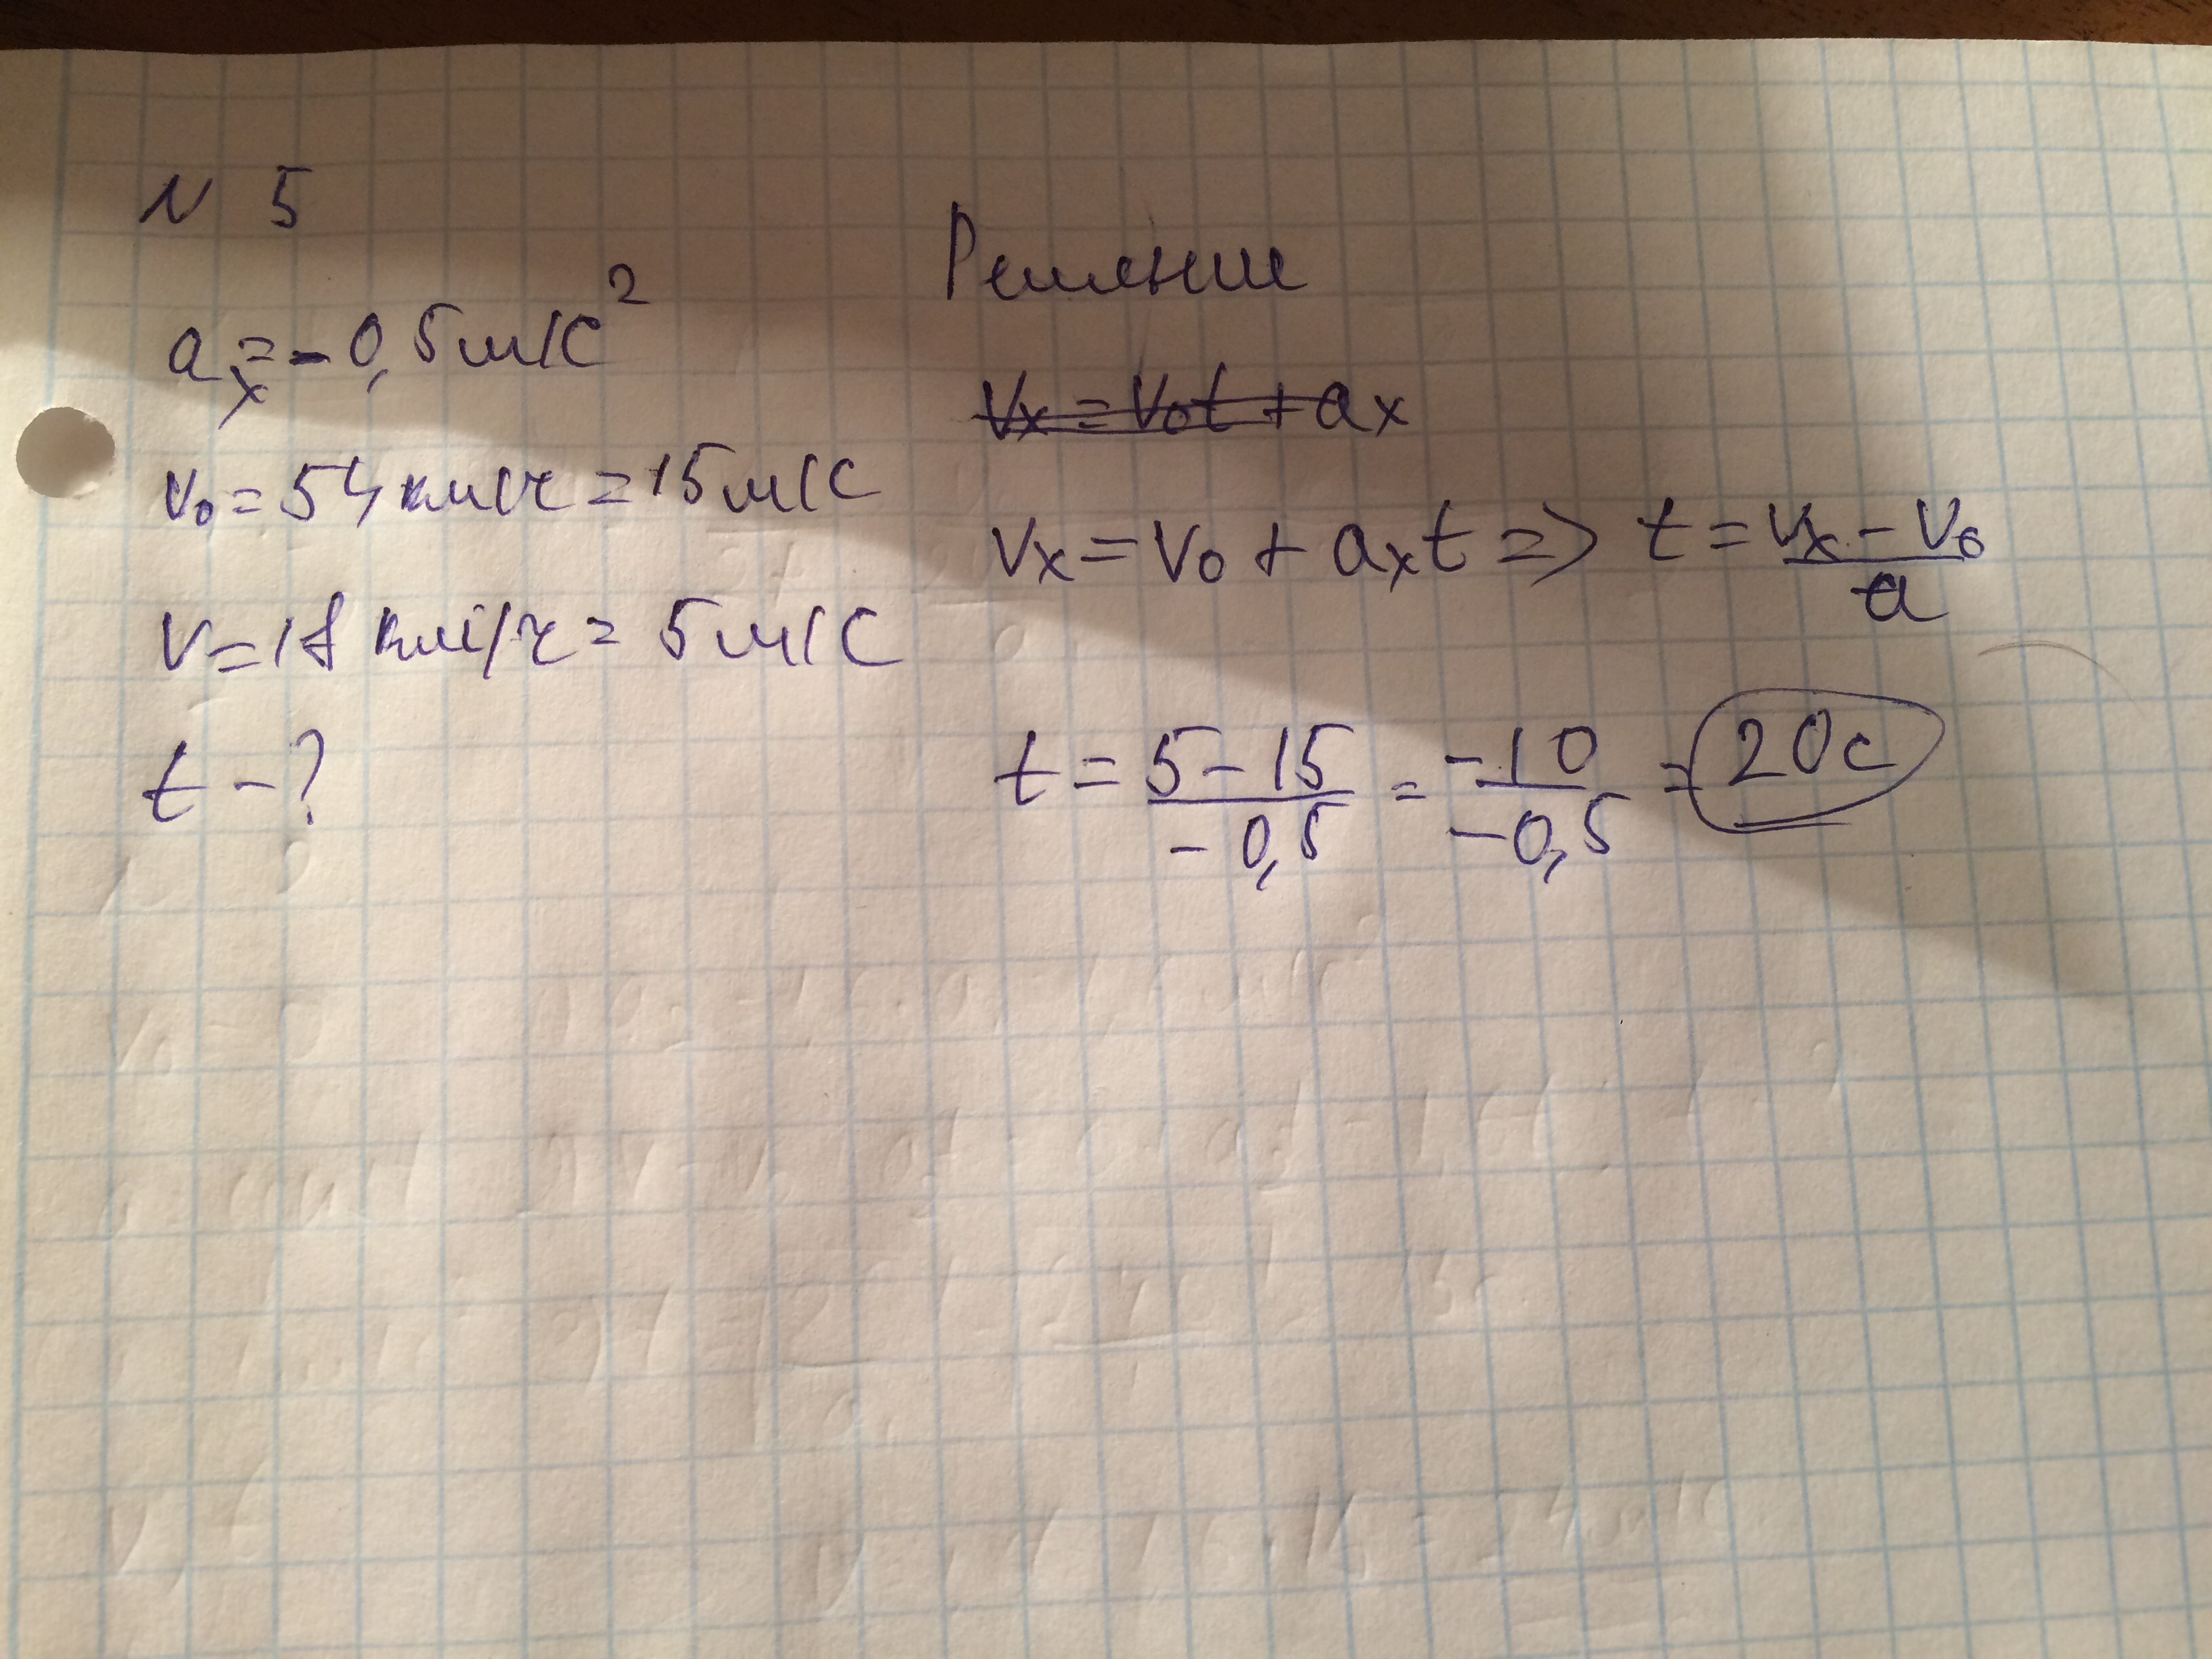 N 5
aₓ = -0,5 м/с²
v₀ = 54 км/ч = 15 м/с
v = 18 км/ч = 5 м/с
t - ?
Решение
vₓ = v₀t + aₓ
vₓ = v₀ + aₓt => t = (vₓ - v₀)/a
t = (5 - 15)/(-0,5) = (-10)/(-0,5) = 20с